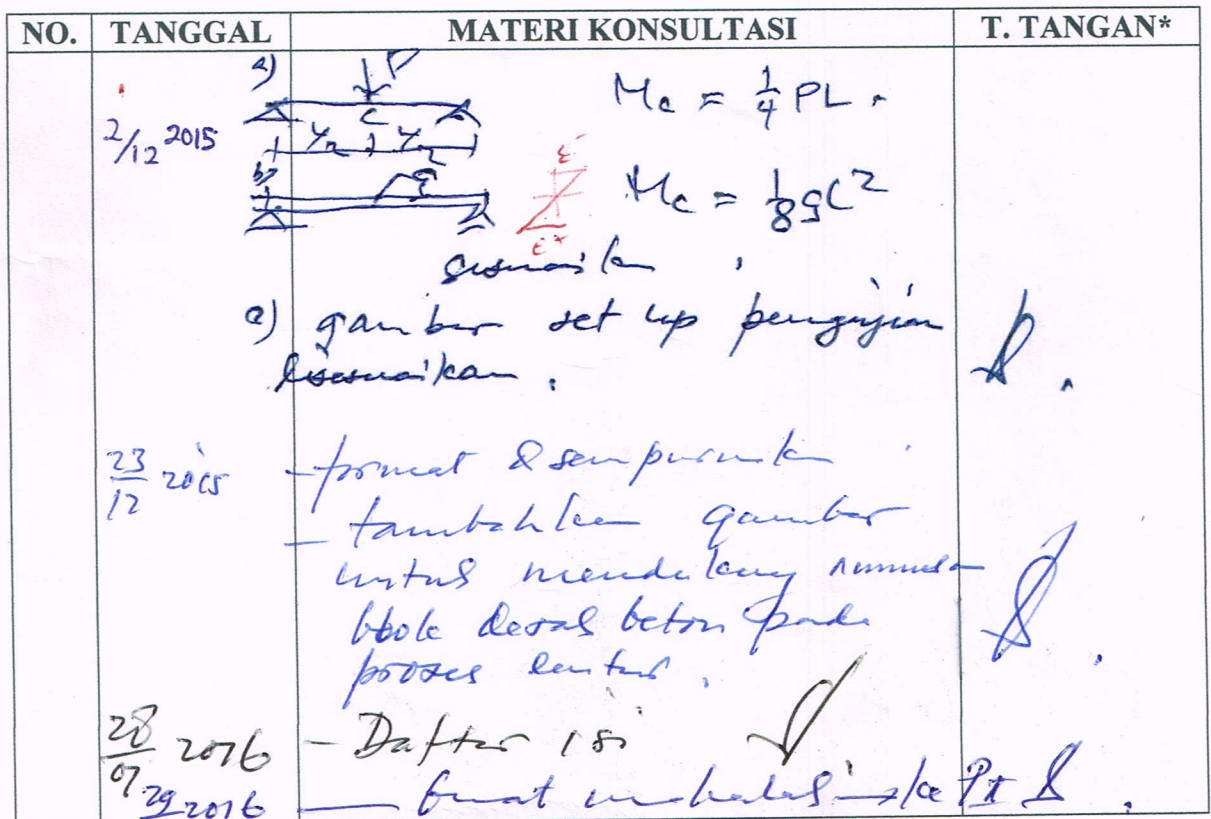 NO. TANGGAL MATERI KONSULTASI T. TANGAN*
2/12 2015
a) P
C
Mc = 1/4 PL.
b) q
Mc = 1/8 qL²
sesuaikan
c) gambar set up pengujian
disesuaikan.
23/12 2015 - format disempurnakan
- tambahkan gambar
untuk mendukung rumusan
blok desak beton pada
proses lentur.
28/01 2016 - Daftar isi
29 2016